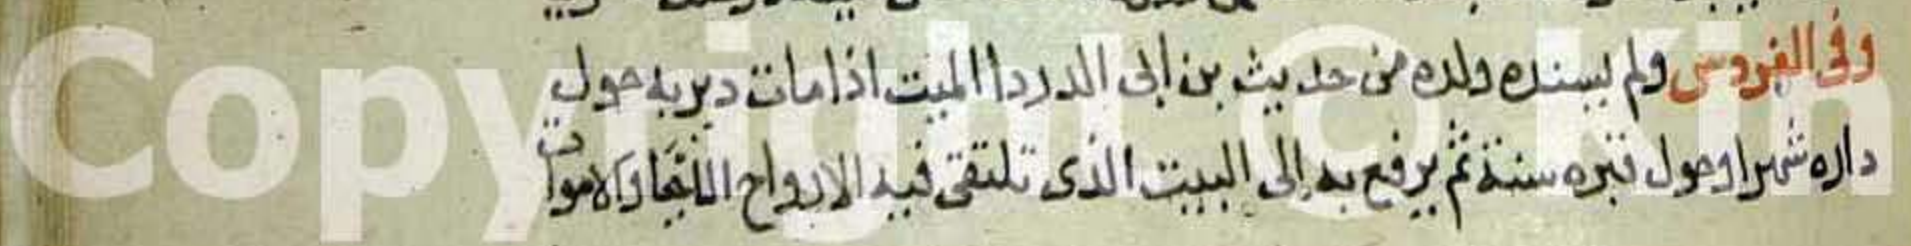 وفى الفردوس ولم يسنده ولده من حديث بن ابى الدردا الميت اذا مات دير به حول
داره شهرا وحول قبره سنة ثم يرفع به إلى البيت الذى تلتقى فيه الارواح الاموات
Copyright © Kin